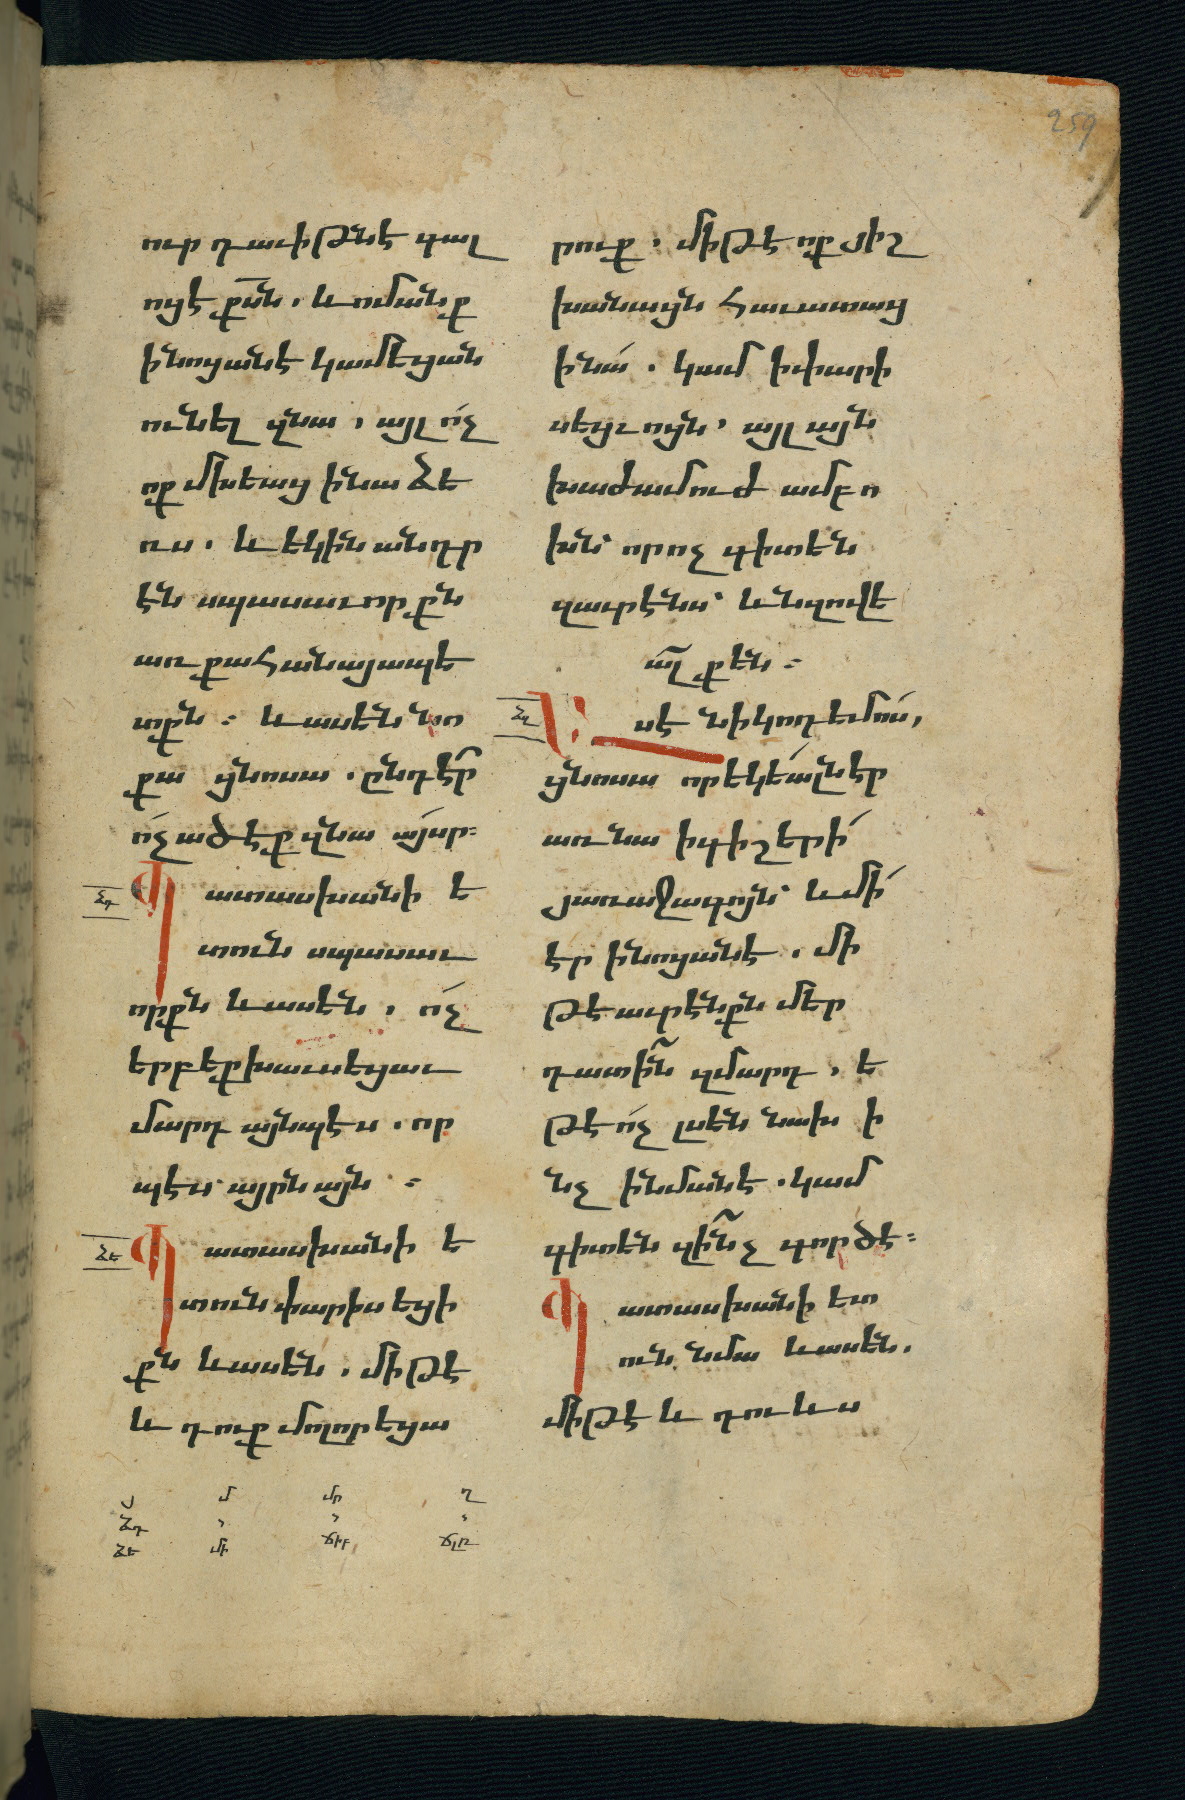 259
ուր դաւիթնէ գալ
ոյէ ք̅ն̅ . և ոմանք
ինոցանէ կամէցան
ունել զնա , այլ ո՛չ
ոք մխեաց ի նա ձե
ռս . և եկին անդր
էն սպասաւորքն
առ քահանայապե
տքն ։ և ասեն նո
քա ցնոսա . ընդէ՞ր
ո՛չ ածէք զնա այսր ։
ՁԴ Պատասխանի ե
տուն սպասաւ
որքն և ասեն , ո՛չ
երբեք խաւսեցաւ
մարդ այնպէս . որ
պէս այրն այն ։
ՁԵ Պատասխանի ե
տուն փարիսեցի
քն և ասեն . միթէ
և դուք մոլորեցա
րուք . միթէ ոք յիշ
խանացն հաւատաց
ի նա՛ . կամ ի փարի
սեցւոցն , այլ այն
խաժամուժ ամբո
խն՝ որ ոչ գիտեն
զաւրէնս՝ և նզովե
ա̅լ̅ քեն ։
ՁԶ Ասէ նիկոդեմոս ,
ցնոսա որ եկեալն էր
առ նա ի գիշերի՛
յառաջագոյն՝ և մի՛
էր ի նոցանէ . մի
թե աւրէնքն մեր
դատի՞ն զմարդ , ե
թէ ո՛չ լսեն նախ ի
նչ ի նմանէ . կամ
գիտեն զի՞նչ գործէ ։
Պատասխանի ետ
ուն նմա և ասեն .
միթէ և դու և ս
Յ Մ Մր Ղ
ՁԴ
ՁԵ